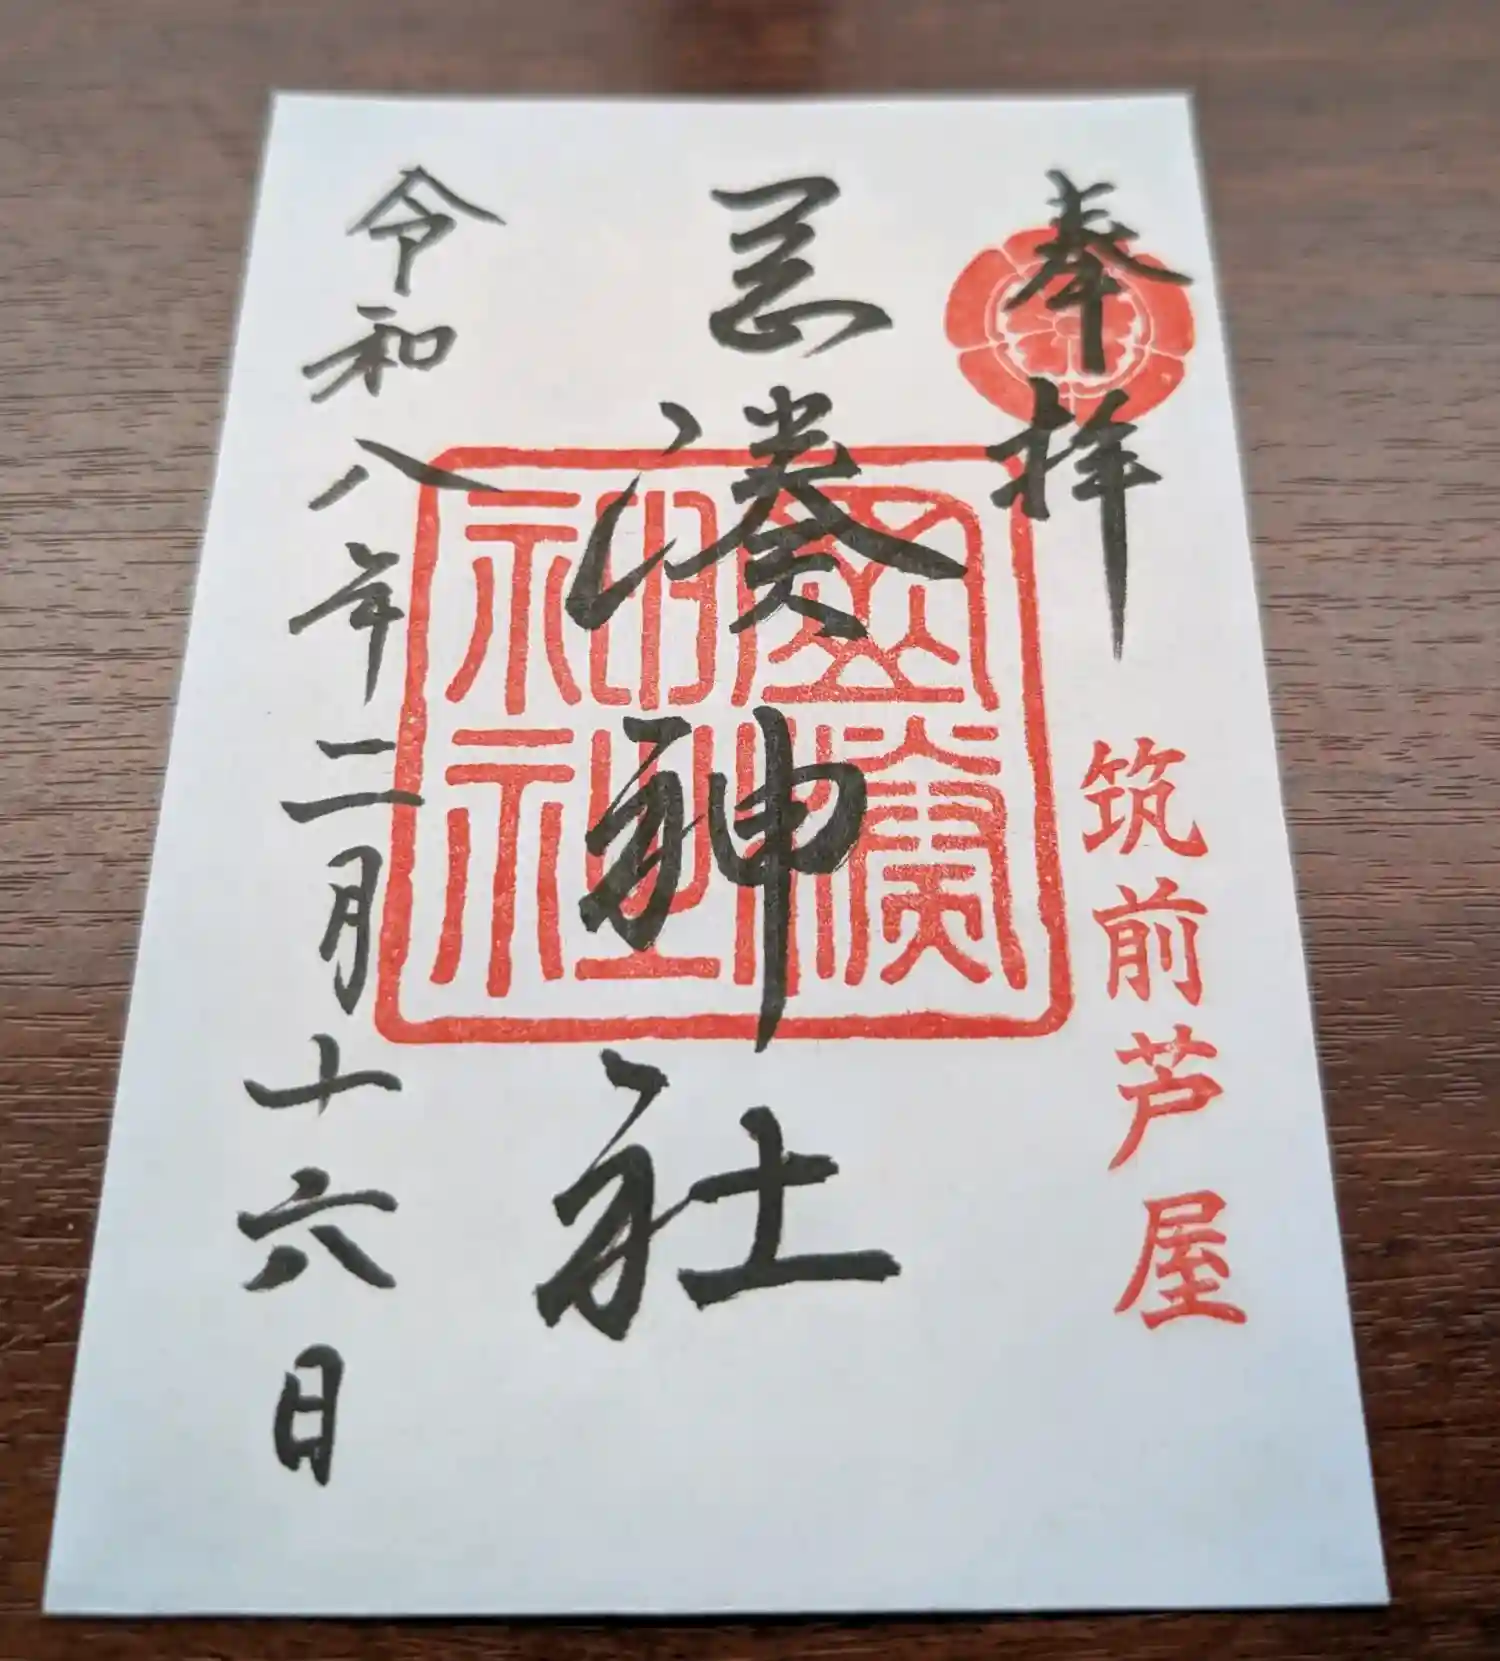 奉拝
筑前芦屋
岡湊神社
岡湊
神社
令和八年二月十六日